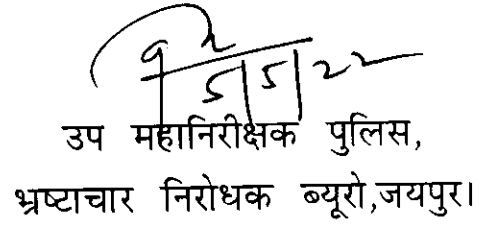 5/5/22
उप महानिरीक्षक पुलिस,
भ्रष्टाचार निरोधक ब्यूरो,जयपुर।